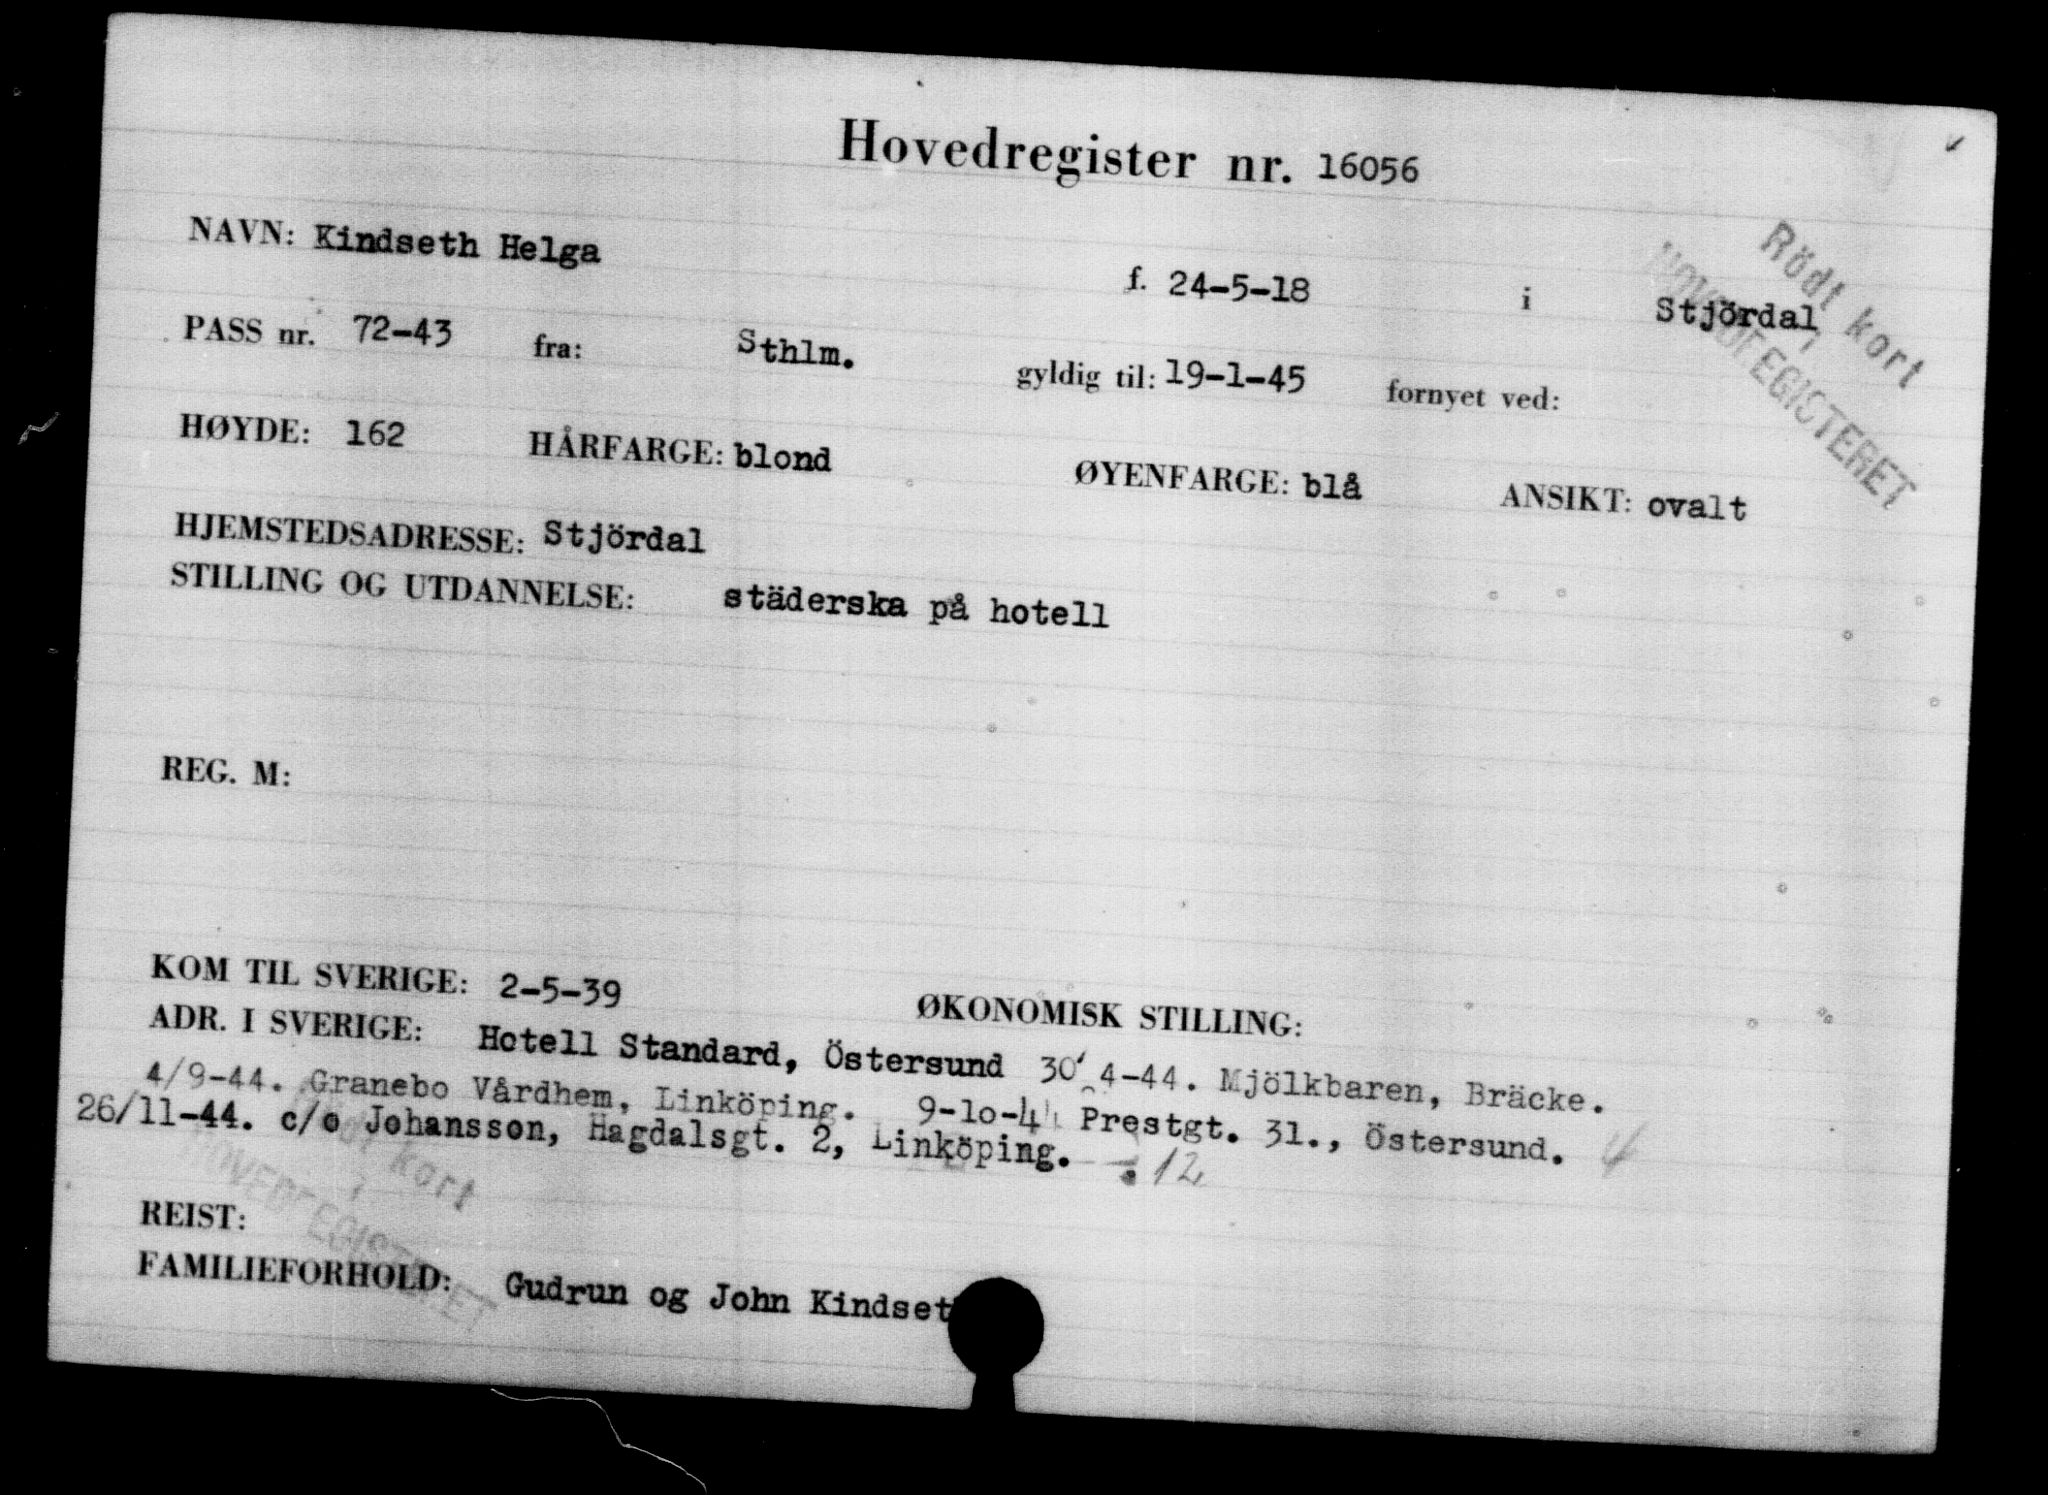 Hovedregister nr. 16056
NAVN: Kindseth Helga f. 24-5-18 i Stjördal
PASS nr. 72-43 fra: Sthlm. gyldig til: 19-1-45 fornyet ved:
Rödt kort
i
HOVEDREGISTERET
HØYDE: 162 HÅRFARGE: blond ØYENFARGE: blå ANSIKT: ovalt
HJEMSTEDSADRESSE: Stjördal
STILLING OG UTDANNELSE: städerska på hotell
REG. M:
KOM TIL SVERIGE: 2-5-39 ØKONOMISK STILLING:
ADR. I SVERIGE: Hotell Standard, Östersund 30 4-44. Mjölkbaren, Bräcke.
4/9-44. Granebo Vårdhem, Linköping. 9-10-44 Prestgt. 31., Östersund.
26/11-44. c/o Johansson, Hagdalsgt. 2, Linköping. 12
Rödt kort
i
HOVEDREGISTERET
REIST:
FAMILIEFORHOLD: Gudrun og John Kindset